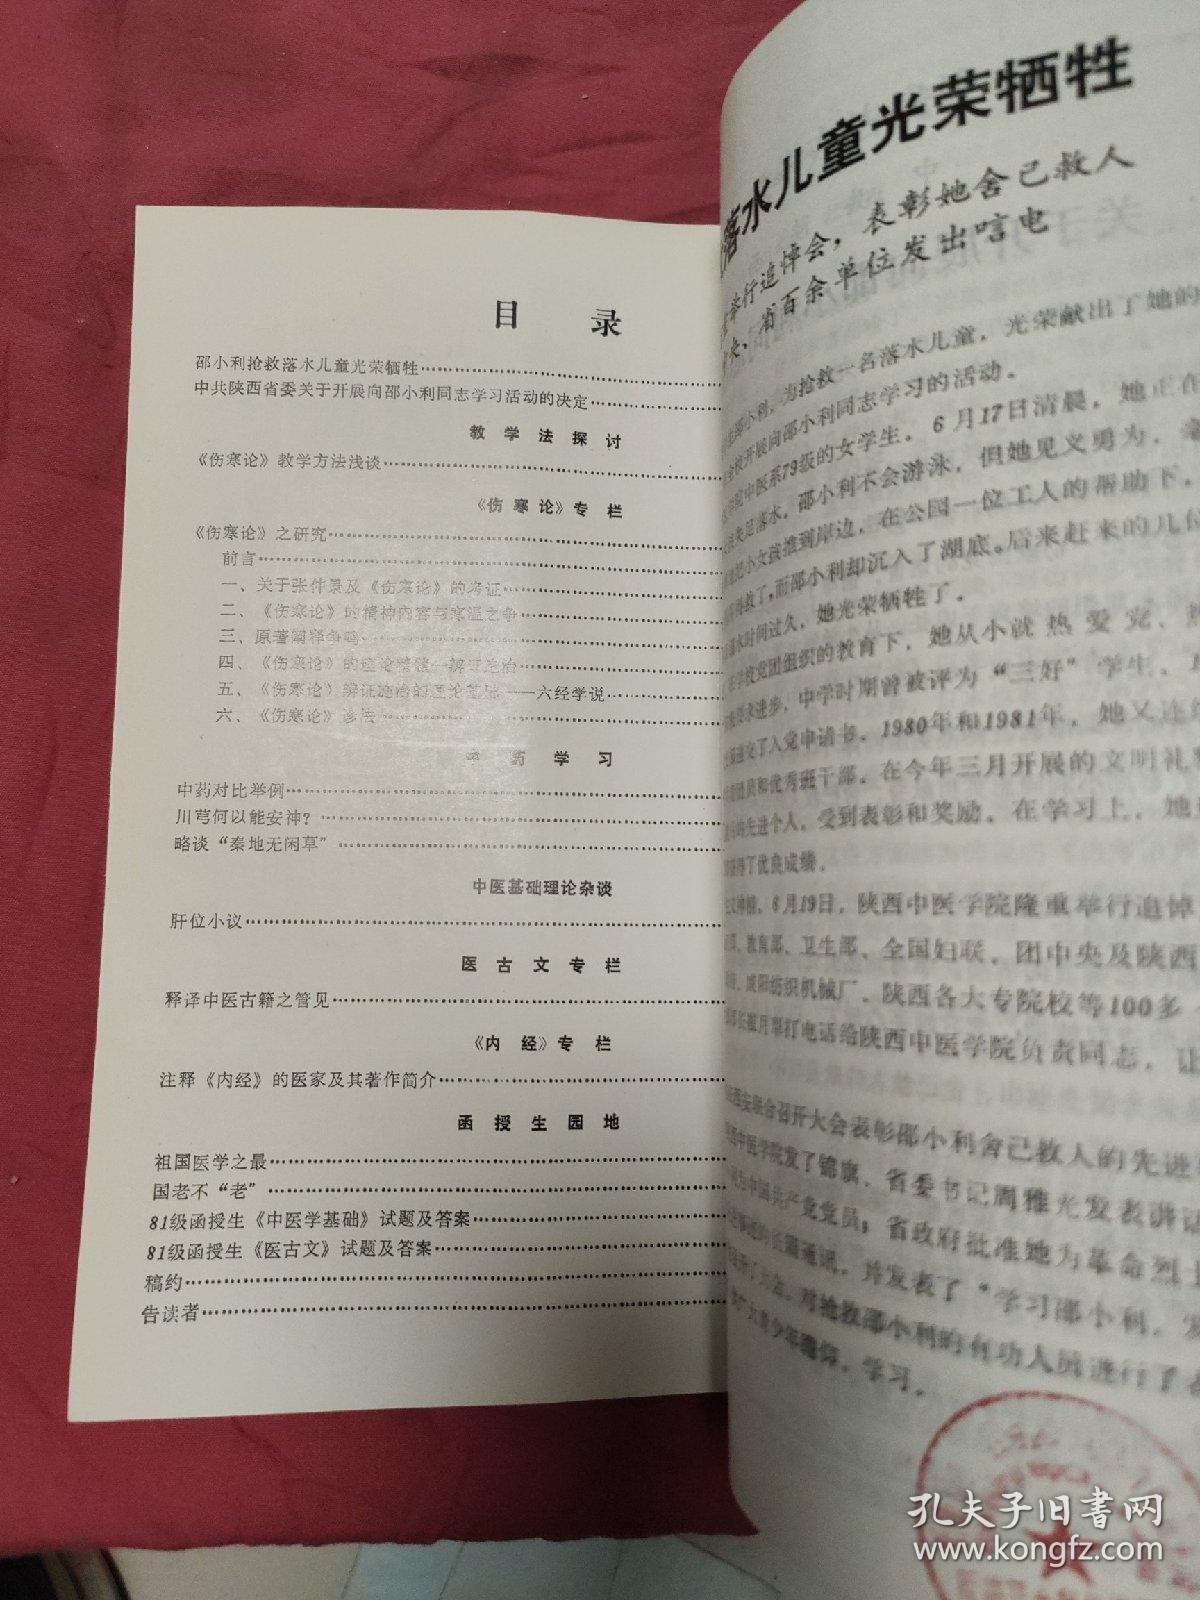 目 录
邵小利抢救落水儿童光荣牺牲
中共陕西省委关于开展向邵小利同志学习活动的决定
教学法探讨
《伤寒论》教学方法浅谈
《伤寒论》专栏
《伤寒论》之研究
前言
一、关于张仲景及《伤寒论》的考证
二、《伤寒论》的精神内容与寒温之争
三、原著阐释争鸣
四、《伤寒论》的理论精髓—辨证论治
五、《伤寒论》辨证施治的理论基础——六经学说
六、《伤寒论》诊法
中药学习
中药对比举例
川芎何以能安神？
略谈“秦地无闲草”
中医基础理论杂谈
肝位小议
医古文专栏
释译中医古籍之管见
《内经》专栏
注释《内经》的医家及其著作简介
函授生园地
祖国医学之最
国老不“老”
81级函授生《中医学基础》试题及答案
81级函授生《医古文》试题及答案
稿约
告读者
落水儿童光荣牺牲
举行追悼会，表彰她舍己救人
央、省百余单位发出唁电
邵小利，为抢救一名落水儿童，光荣献出了她的
全校开展向邵小利同志学习的活动．
学院中医系79级的女学生．6月17日清晨，她正在
失足落水．邵小利不会游泳，但她见义勇为，毫
把小女孩推到岸边，在公园一位工人的帮助下，
得救了，而邵小利却沉入了湖底。后来赶来的几位
溺水时间过久，她光荣牺牲了．
在学校党团组织的教育下，她从小就热爱党、热
要求进步，中学时期曾被评为“三好”学生，
递交了入党申请书．1980年和1981年，她又连续
团员和优秀班干部．在今年三月开展的文明礼
的先进个人，受到表彰和奖励．在学习上，她
获得了优良成绩．
6月19日，陕西中医学院隆重举行追悼
教育部、卫生部、全国妇联、团中央及陕西
咸阳纺织机械厂、陕西各大专院校等100多
部长崔月犁打电话给陕西中医学院负责同志，让
西安联合召开大会表彰邵小利舍己救人的先进
西中医学院发了锦旗．省委书记周雅光发表讲话
为中国共产党党员；省政府批准她为革命烈士
的长篇通讯，并发表了“学习邵小利，发
对抢救邵小利的有功人员进行了表
青少年瞻仰、学习．
孔夫子旧书网
www.kongfz.com